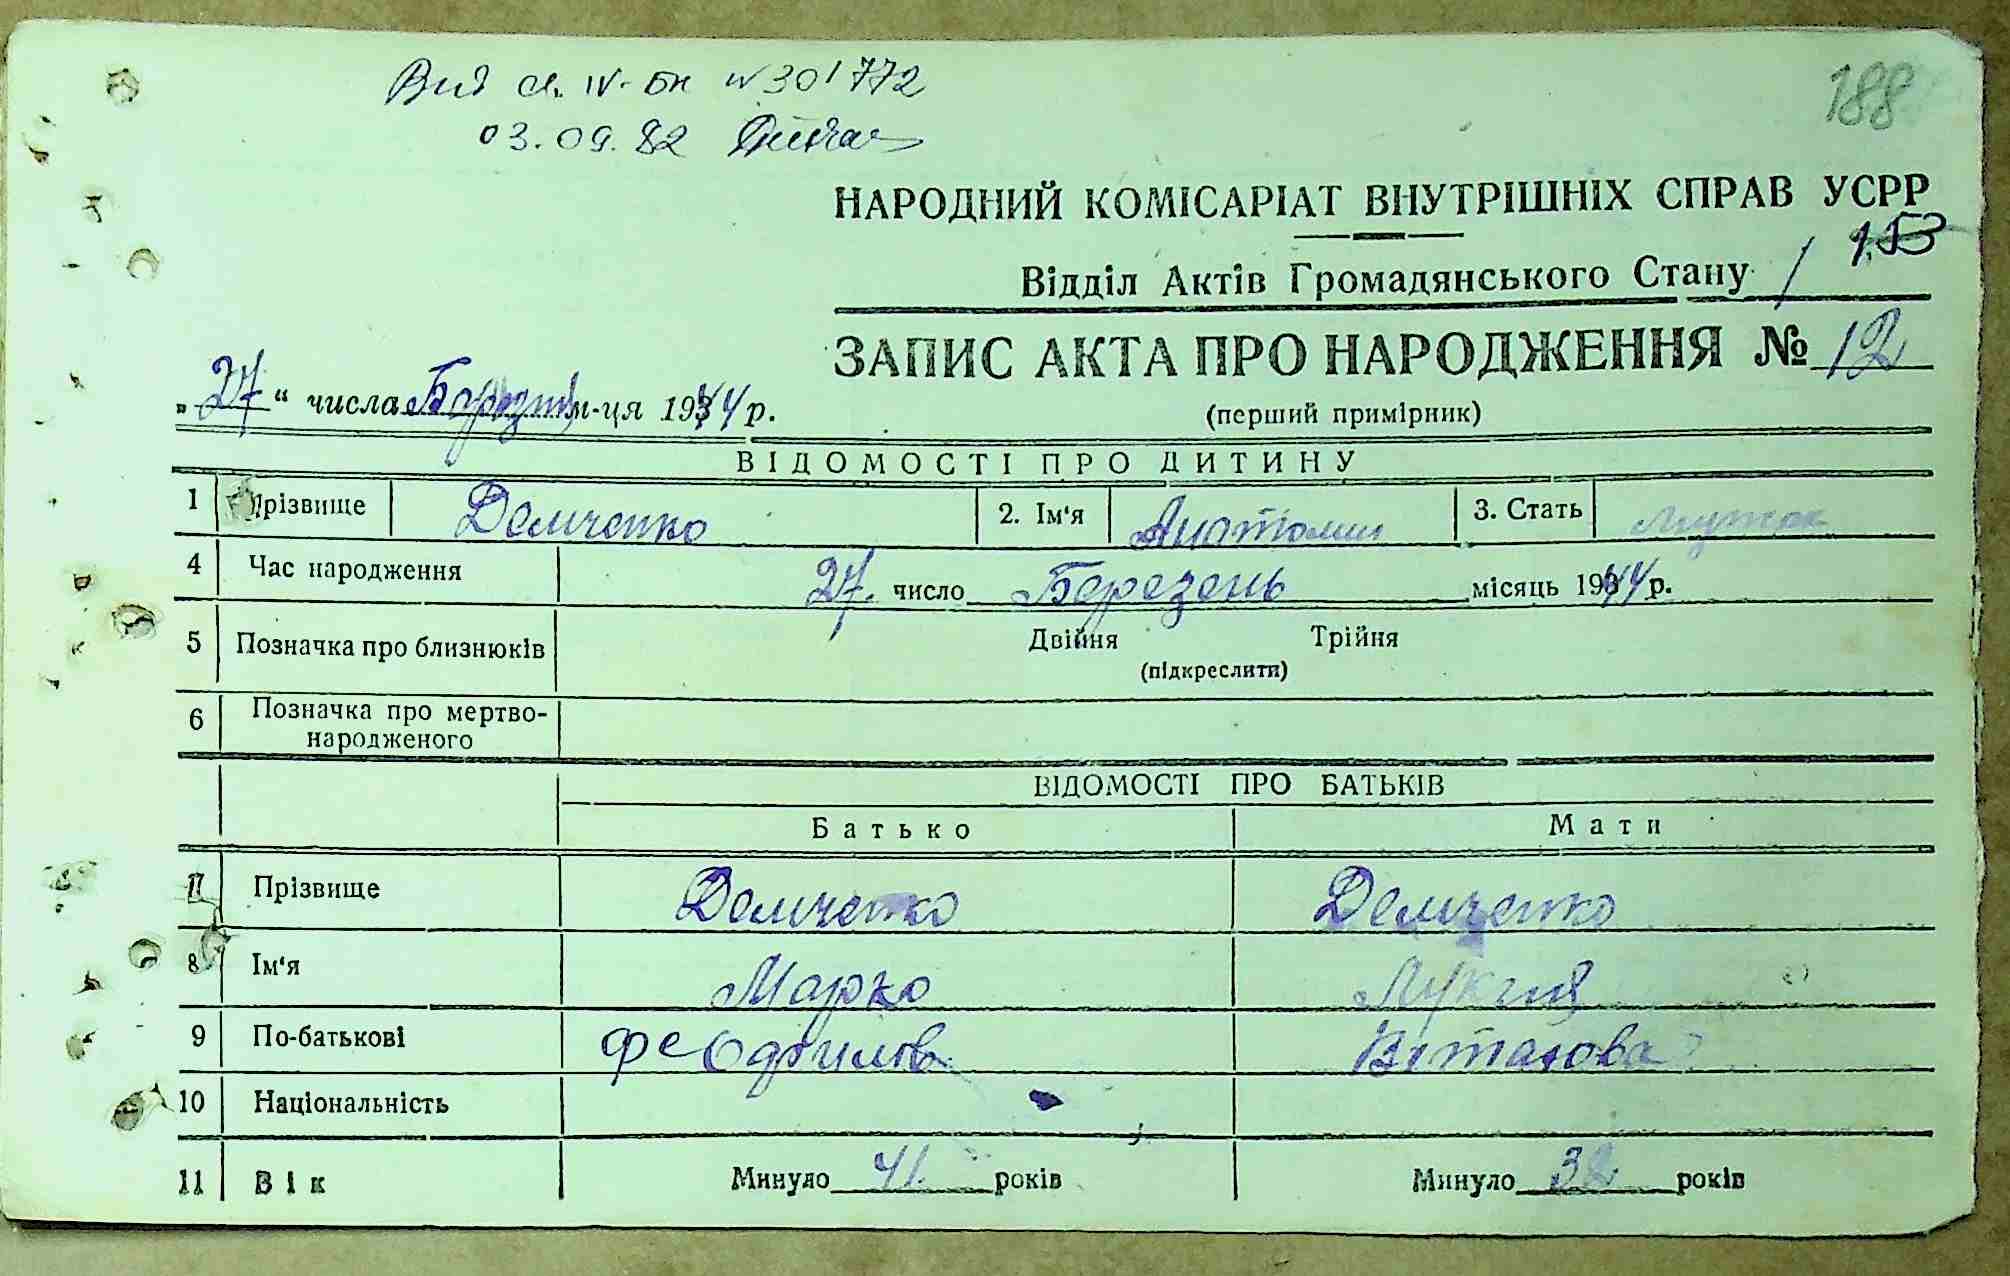 Вид св. IV-БК № 301772
03.09.82
188
НАРОДНИЙ КОМІСАРІАТ ВНУТРІШНІХ СПРАВ УСРР
153
Відділ Актів Громадянського Стану /
ЗАПИС АКТА ПРО НАРОДЖЕННЯ № 12
„27“ числа Березня м-ця 1944 р.
(перший примірник)
ВІДОМОСТІ ПРО ДИТИНУ
1 Прізвище Демченко 2. Ім'я Анатолий 3. Стать
4 Час народження 27. число Березень місяць 1944 р.
5 Позначка про близнюків Двійня Трійня
(підкреслити)
6 Позначка про мертво-
народженого
ВІДОМОСТІ ПРО БАТЬКІВ
Батько Мати
7 Прізвище Демченко Демченко
8 Ім'я Марко Лукия
9 По-батькові
10 Національність
11 Вік Минуло 41 років Минуло 32 років